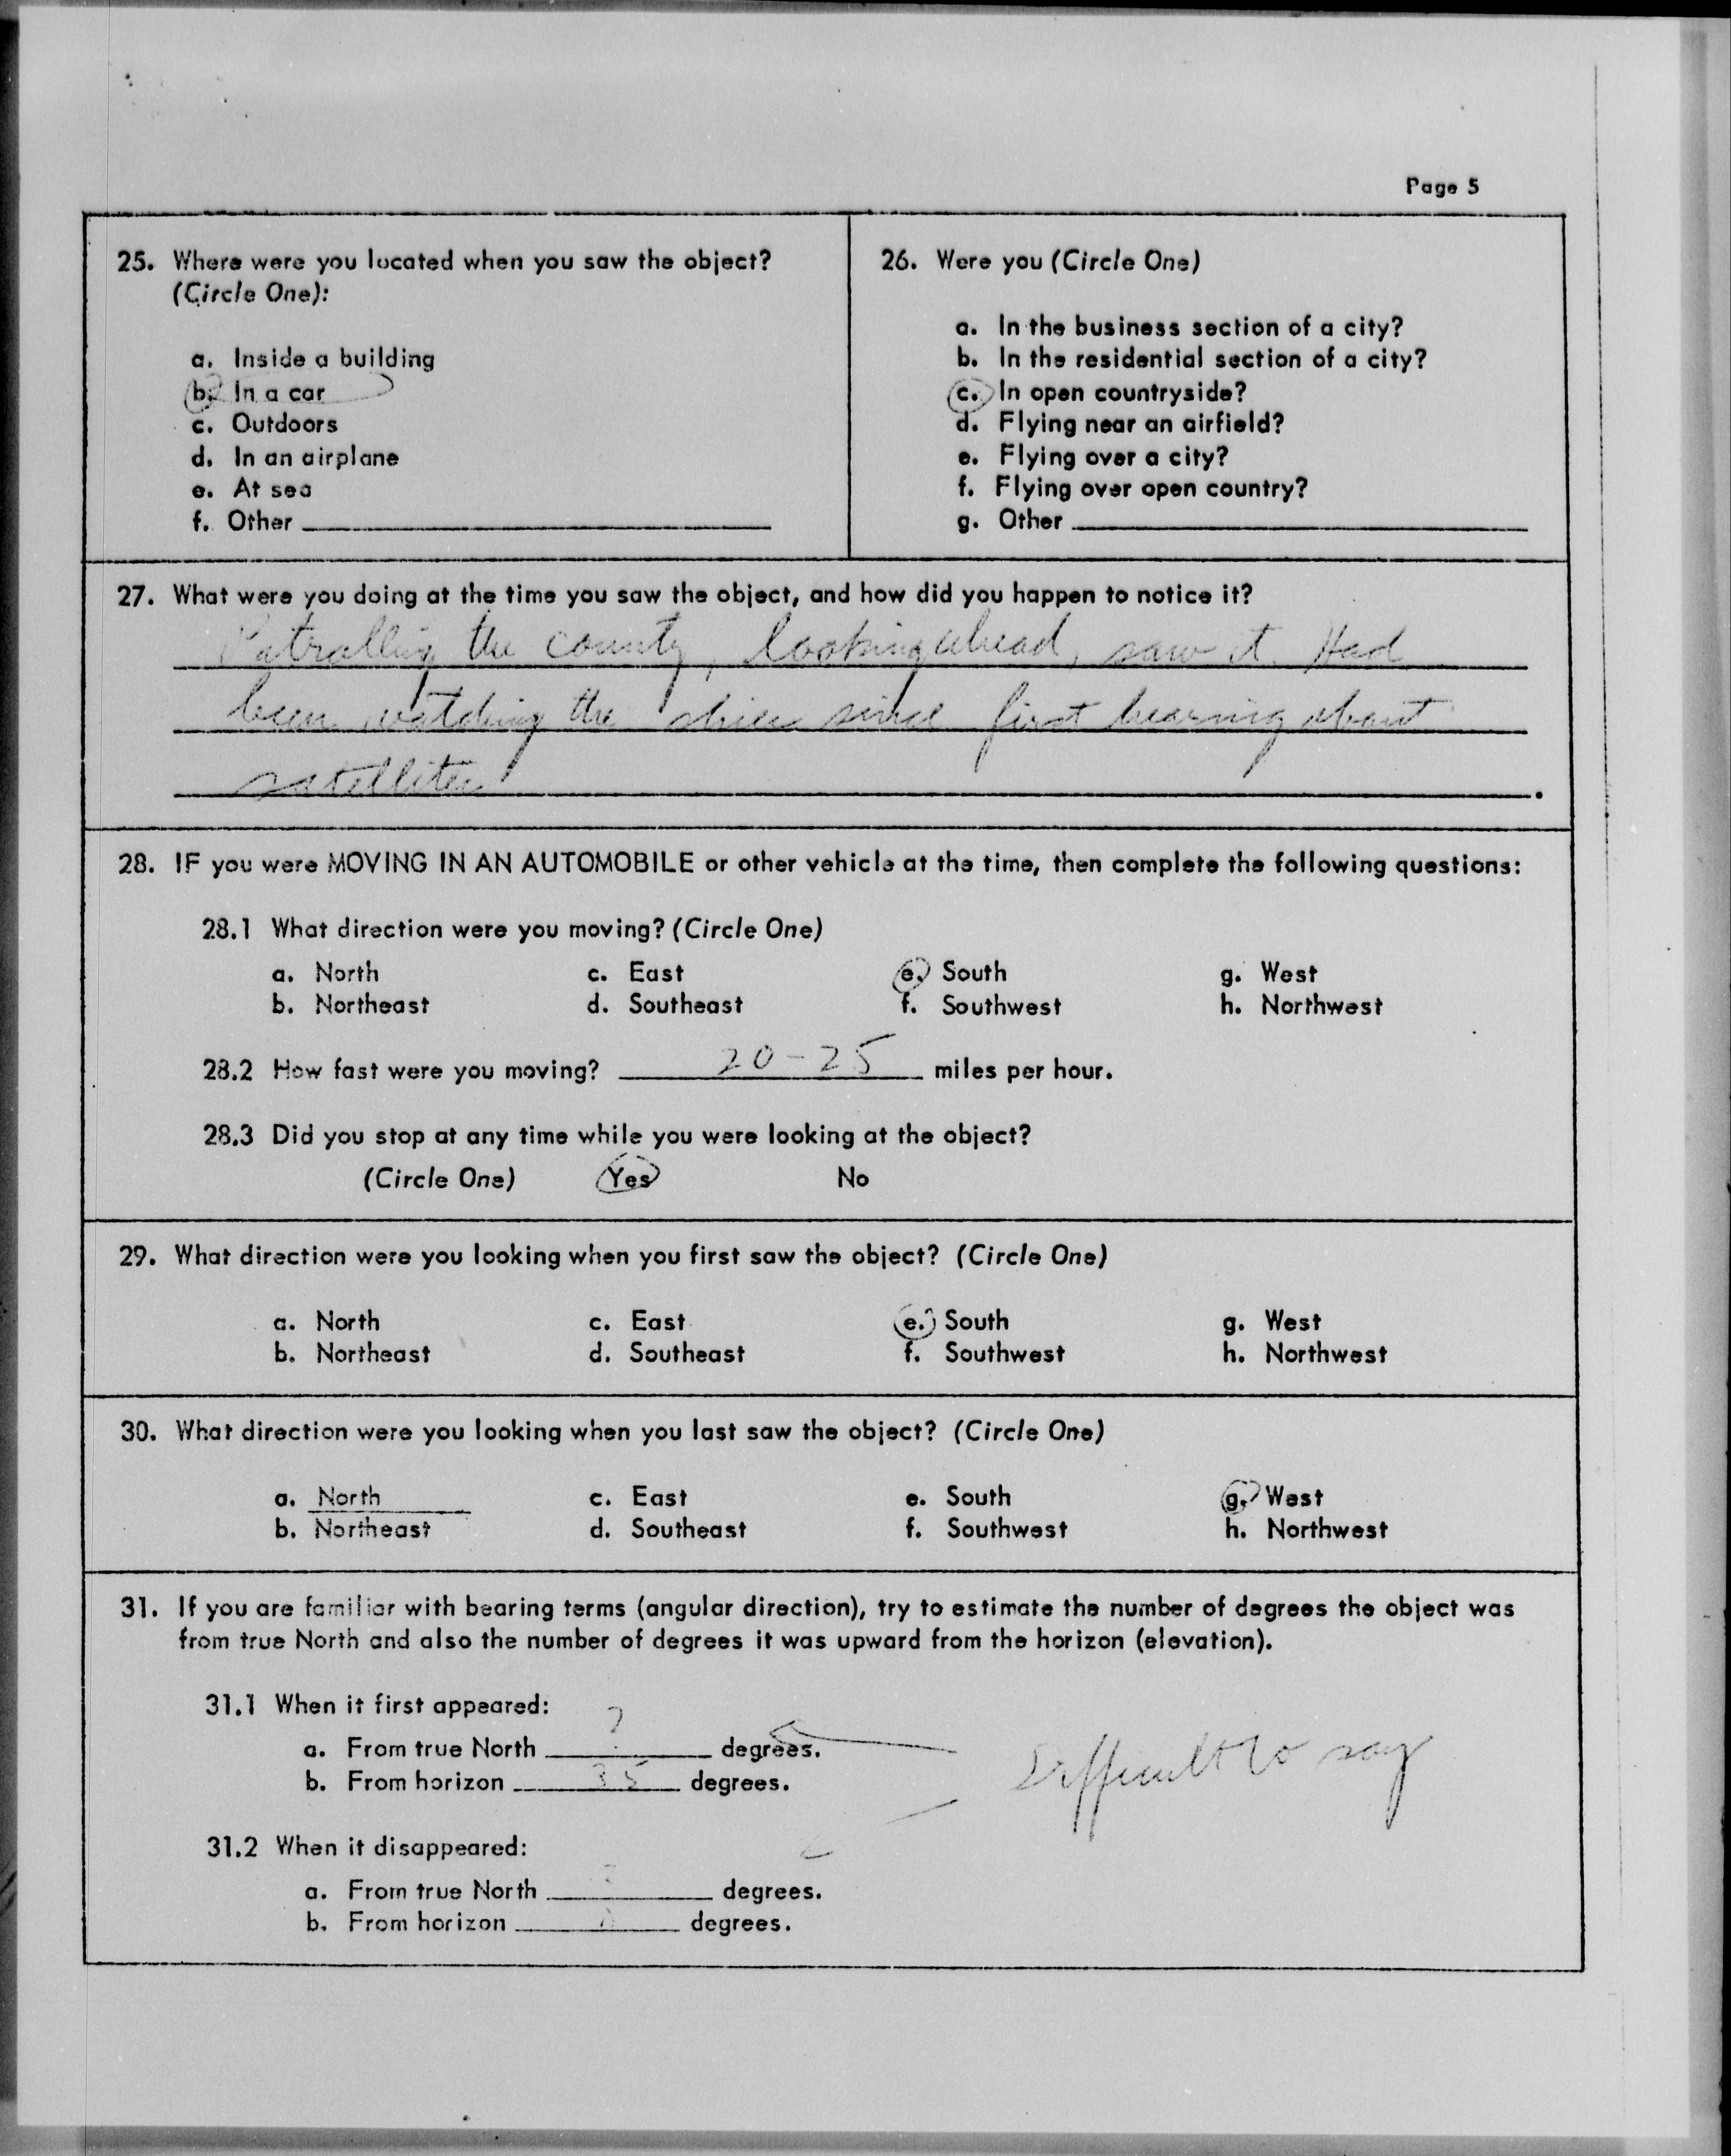 Page 5
25. Where were you located when you saw the object?
(Circle One):
a. Inside a building
b. In a car
c. Outdoors
d. In an airplane
e. At sea
f. Other
26. Were you (Circle One)
a. In the business section of a city?
b. In the residential section of a city?
c. In open countryside?
d. Flying near an airfield?
e. Flying over a city?
f. Flying over open country?
g. Other
27. What were you doing at the time you saw the object, and how did you happen to notice it?
Patrolling the county, looking ahead, saw it. Had
been watching the skies since first hearing about
satellites
28. IF you were MOVING IN AN AUTOMOBILE or other vehicle at the time, then complete the following questions:
28.1 What direction were you moving? (Circle One)
a. North c. East e. South g. West
b. Northeast d. Southeast f. Southwest h. Northwest
28.2 How fast were you moving? 20-25 miles per hour.
28.3 Did you stop at any time while you were looking at the object?
(Circle One) Yes No
29. What direction were you looking when you first saw the object? (Circle One)
a. North c. East e. South g. West
b. Northeast d. Southeast f. Southwest h. Northwest
30. What direction were you looking when you last saw the object? (Circle One)
a. North c. East e. South g. West
b. Northeast d. Southeast f. Southwest h. Northwest
31. If you are familiar with bearing terms (angular direction), try to estimate the number of degrees the object was
from true North and also the number of degrees it was upward from the horizon (elevation).
31.1 When it first appeared:
a. From true North ? degrees.
b. From horizon 35 degrees.
Difficult to say
31.2 When it disappeared:
a. From true North ? degrees.
b. From horizon degrees.